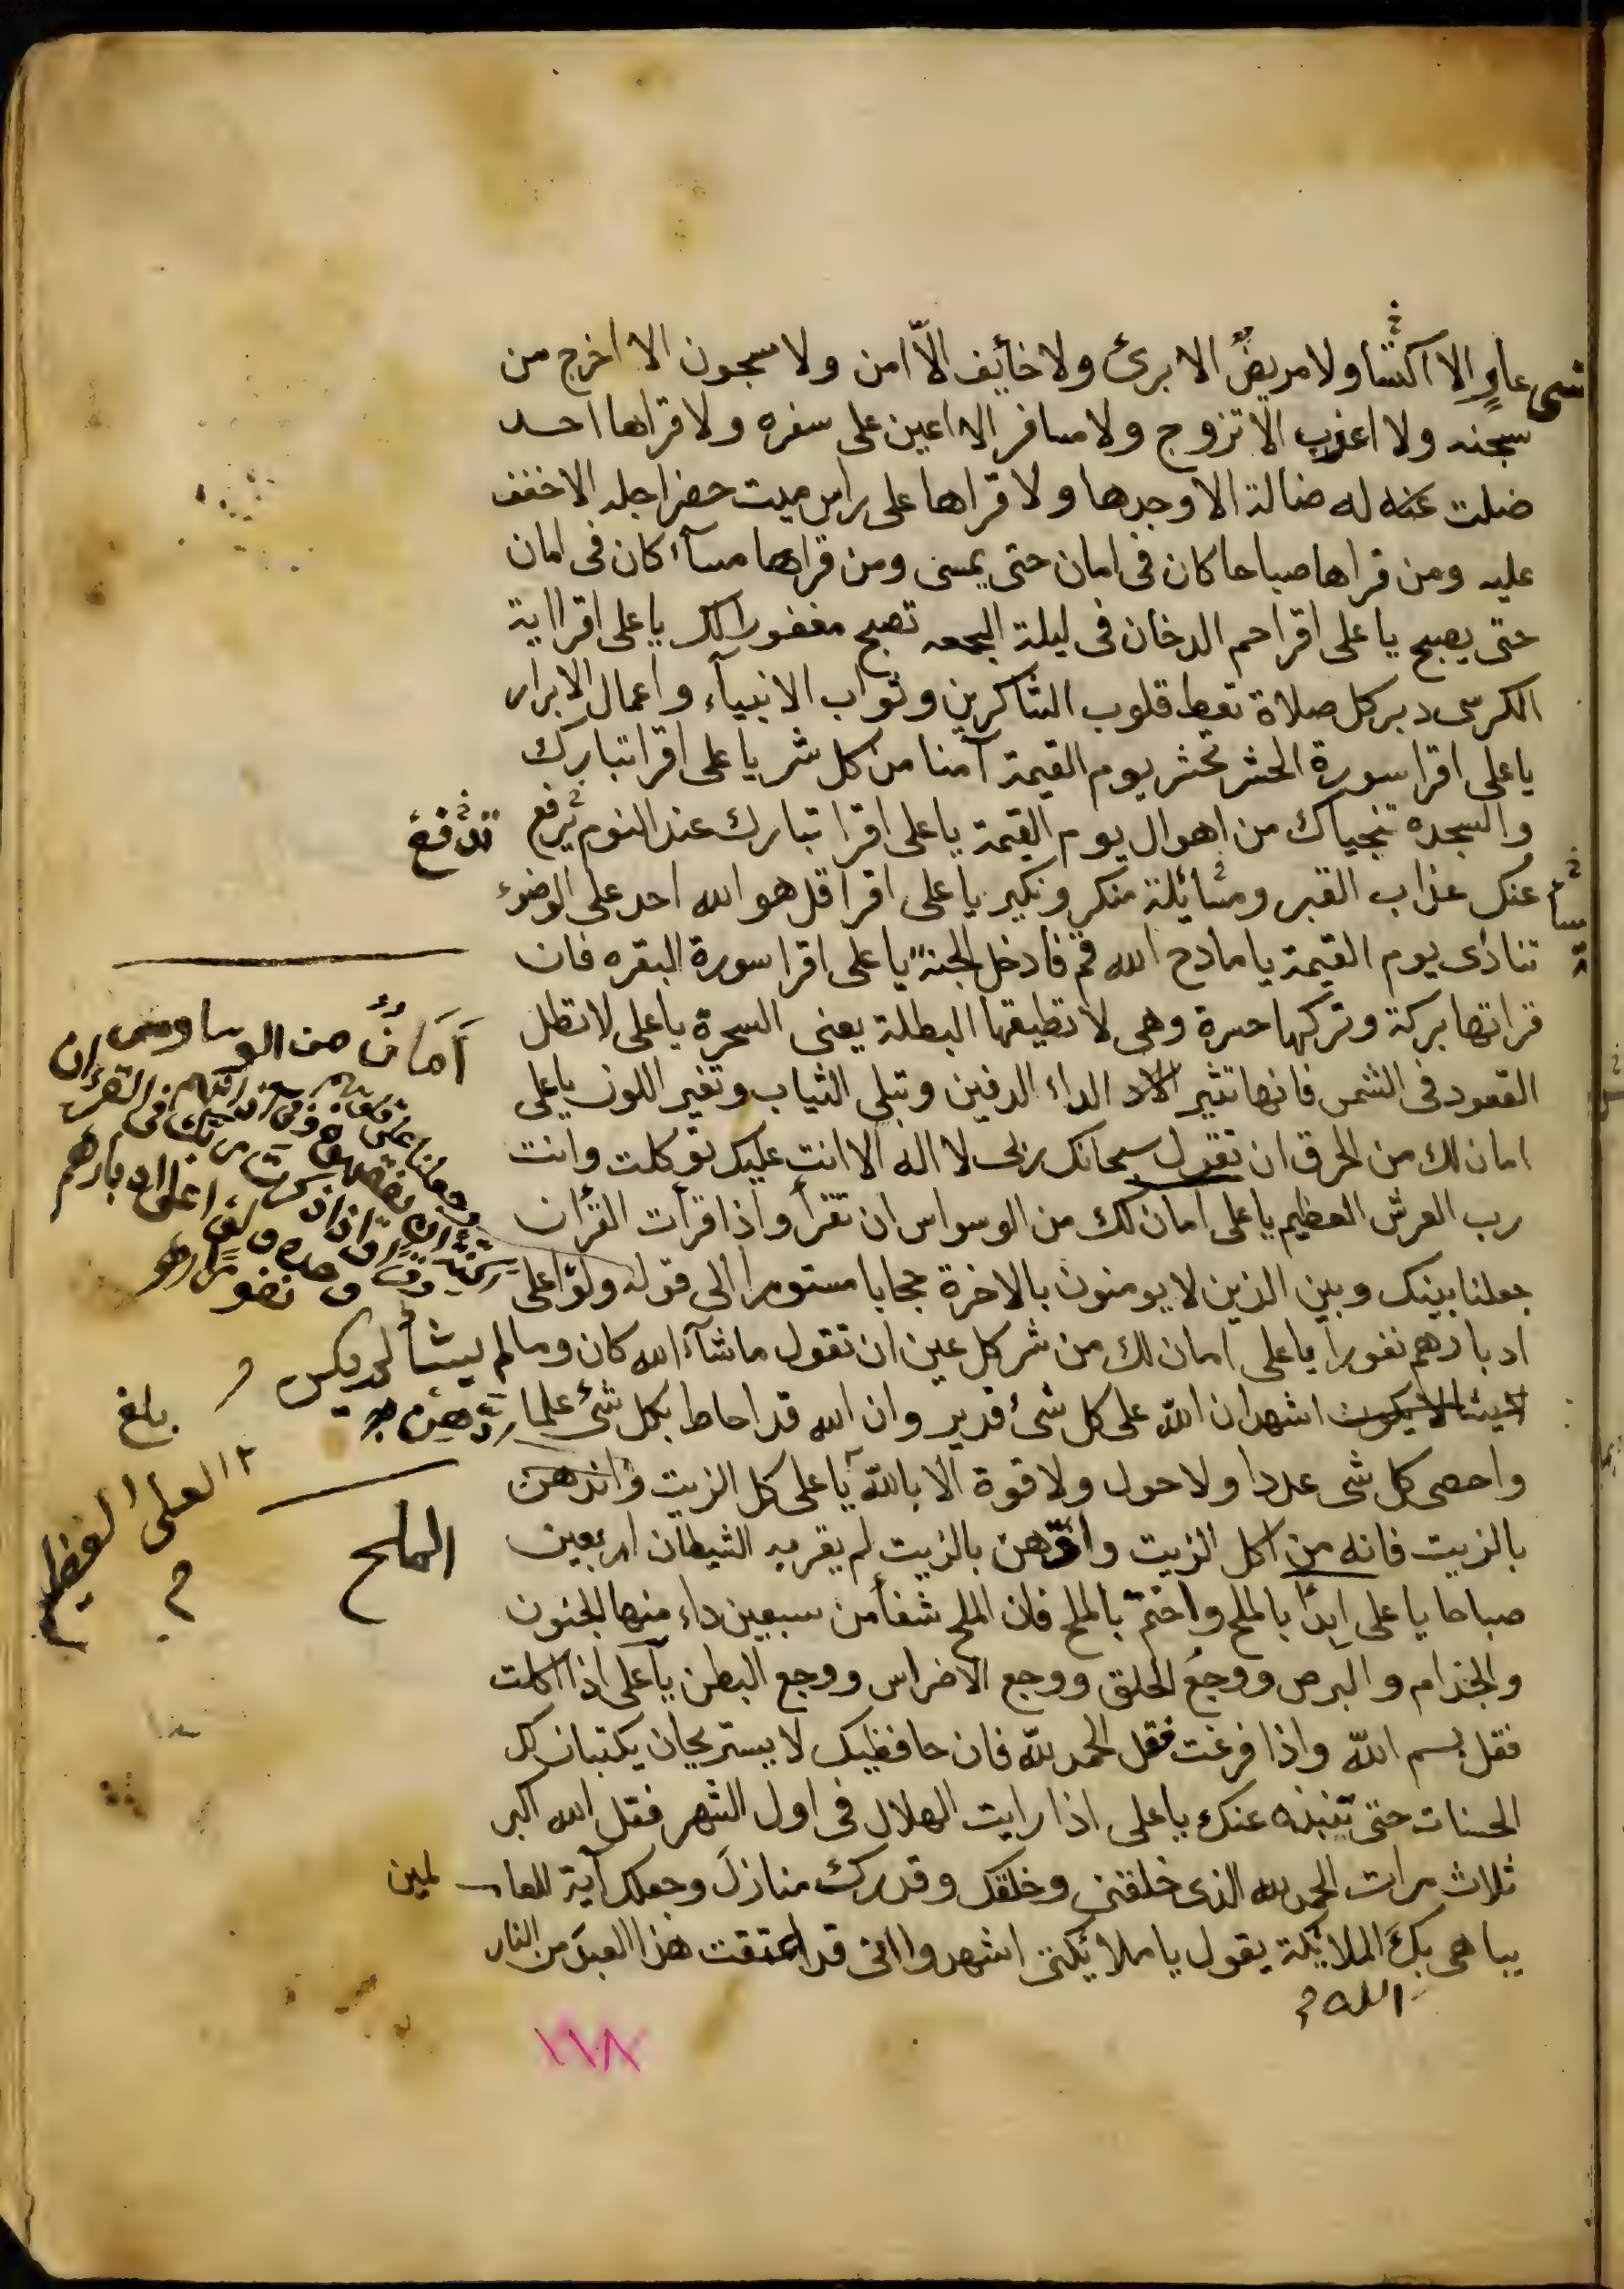 عاوٍ الا اكتسا ولا مريضٌ الا برئ ولا خائف الّا امن ولا مسجون الا اخرج من
سجنه ولا اعزب الا تزوج ولا مسافر الا اعين على سفره ولا قراها احد
ضلت له ضالة الا وجدها ولا قراها على راس ميت حضر اجله الا خفف
عليه ومن قراها صباحا كان فى امان حتى يمسى ومن قراها مسآء كان فى امان
حتى يصبح يا على اقرا حم الدخان فى ليلة الجمعه تصبح مغفورا لك يا على اقرا اية
الكرسى دبر كل صلاة تعط قلوب الشاكرين وثواب الانبيآء واعمال الابرار
يا على اقرا سورة الحشر تحشر يوم القيمة آمنا من كل شر يا على اقرا تبارك
والسجده تنجياك من اهوال يوم القيمة يا على اقرا تبارك عند النوم ترفع
تدفع
عنك عذاب القبر ومسائلة منكر ونكير يا على اقرا قل هو الله احد على الوضوء
تنادى يوم القيمة يا مادح الله قم فادخل الجنة يا على اقرا سورة البقره فان
قراتها بركة وتركها حسرة وهى لا تطيقها البطلة يعنى السحرة يا على لا تطل
القعود فى الشمس فانها تثير الداء الدفين وتبلى الثياب وتغير اللون يا على
امان لك من الحرق ان تقول سبحانك ربى لا اله الا انت عليك توكلت وانت
رب العرش العظيم يا على امان لك من الوسواس ان تقرأ واذا قرأت القرآن
جعلنا بينك وبين الذين لا يومنون بالاخرة حجابا مستورا الى قوله ولوّا على
ادبارهم نفورا يا على امان لك من شر كل عين ان تقول ماشآء الله كان وما لم يشأ لم يكن
اشهد ان الله على كل شئ قدير وان الله قد احاط بكل شئ علما
واحصى كل شى عددا ولا حول ولا قوة الا بالله يا على كل الزيت واندهن
بالزيت فانه من اكل الزيت وادّهن بالزيت لم يقربه الشيطان اربعين
صباحا يا على ابدأ بالملح واختم بالملح فان الملح شفأ من سبعين داء منها الجنون
والجذام والبرص ووجع الحلق ووجع الاضراس ووجع البطن يا على اذا اكلت
فقل بسم الله واذا فرغت فقل الحمد لله فان حافظيك لا يستريحان يكتبان لك
الحسنات حتى تنبذه عنك يا على اذا رايت الهلال فى اول الشهر فقل الله اكبر
ثلاث مرات الحمد لله الذى خلقنى وخلقك وقدرك منازل وجعلك آية للعالمين
يباهى بك الملائكة يقول يا ملائكتى اشهدوا انى قد اعتقت هذا العبد من النار
الله
أَمَانٌ من الوساوس
بلغ
العلى العظيم
الملح
١١٨